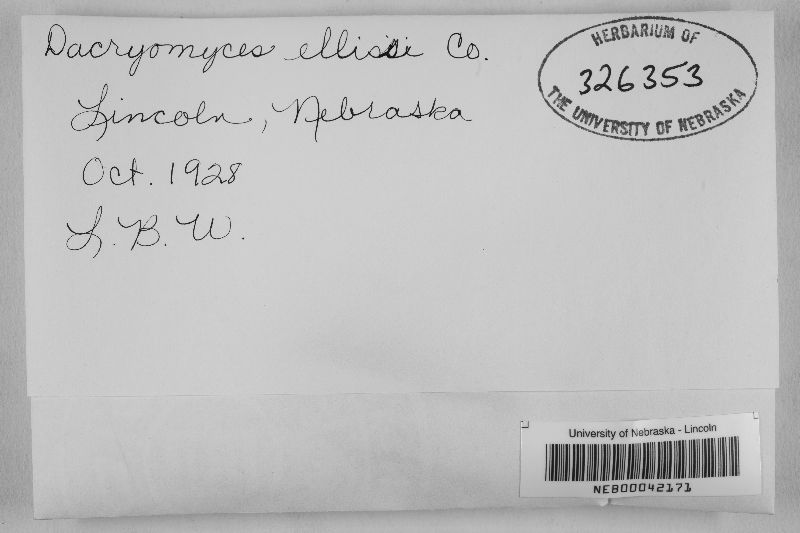 Dacryomyces ellisii Co.
Lincoln, Nebraska
Oct. 1928
L. B. W.
HERBARIUM OF
326353
THE UNIVERSITY OF NEBRASKA
University of Nebraska - Lincoln
NEB00042171